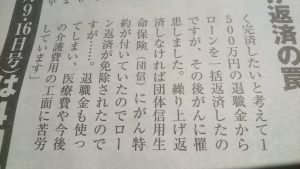 返済の罠
く完済したいと考えて1
500万円の退職金から
ローンを一括返済したの
ですが、その後がんに罹
患しました。繰り上げ返
済しなければ団体信用生
命保険（団信）にがん特
約が付いていたのでロー
ン返済が免除されたので
すが……。退職金も使っ
てしまい、医療費や今後
の介護費用の工面に苦労
しています」
9・16日号）は